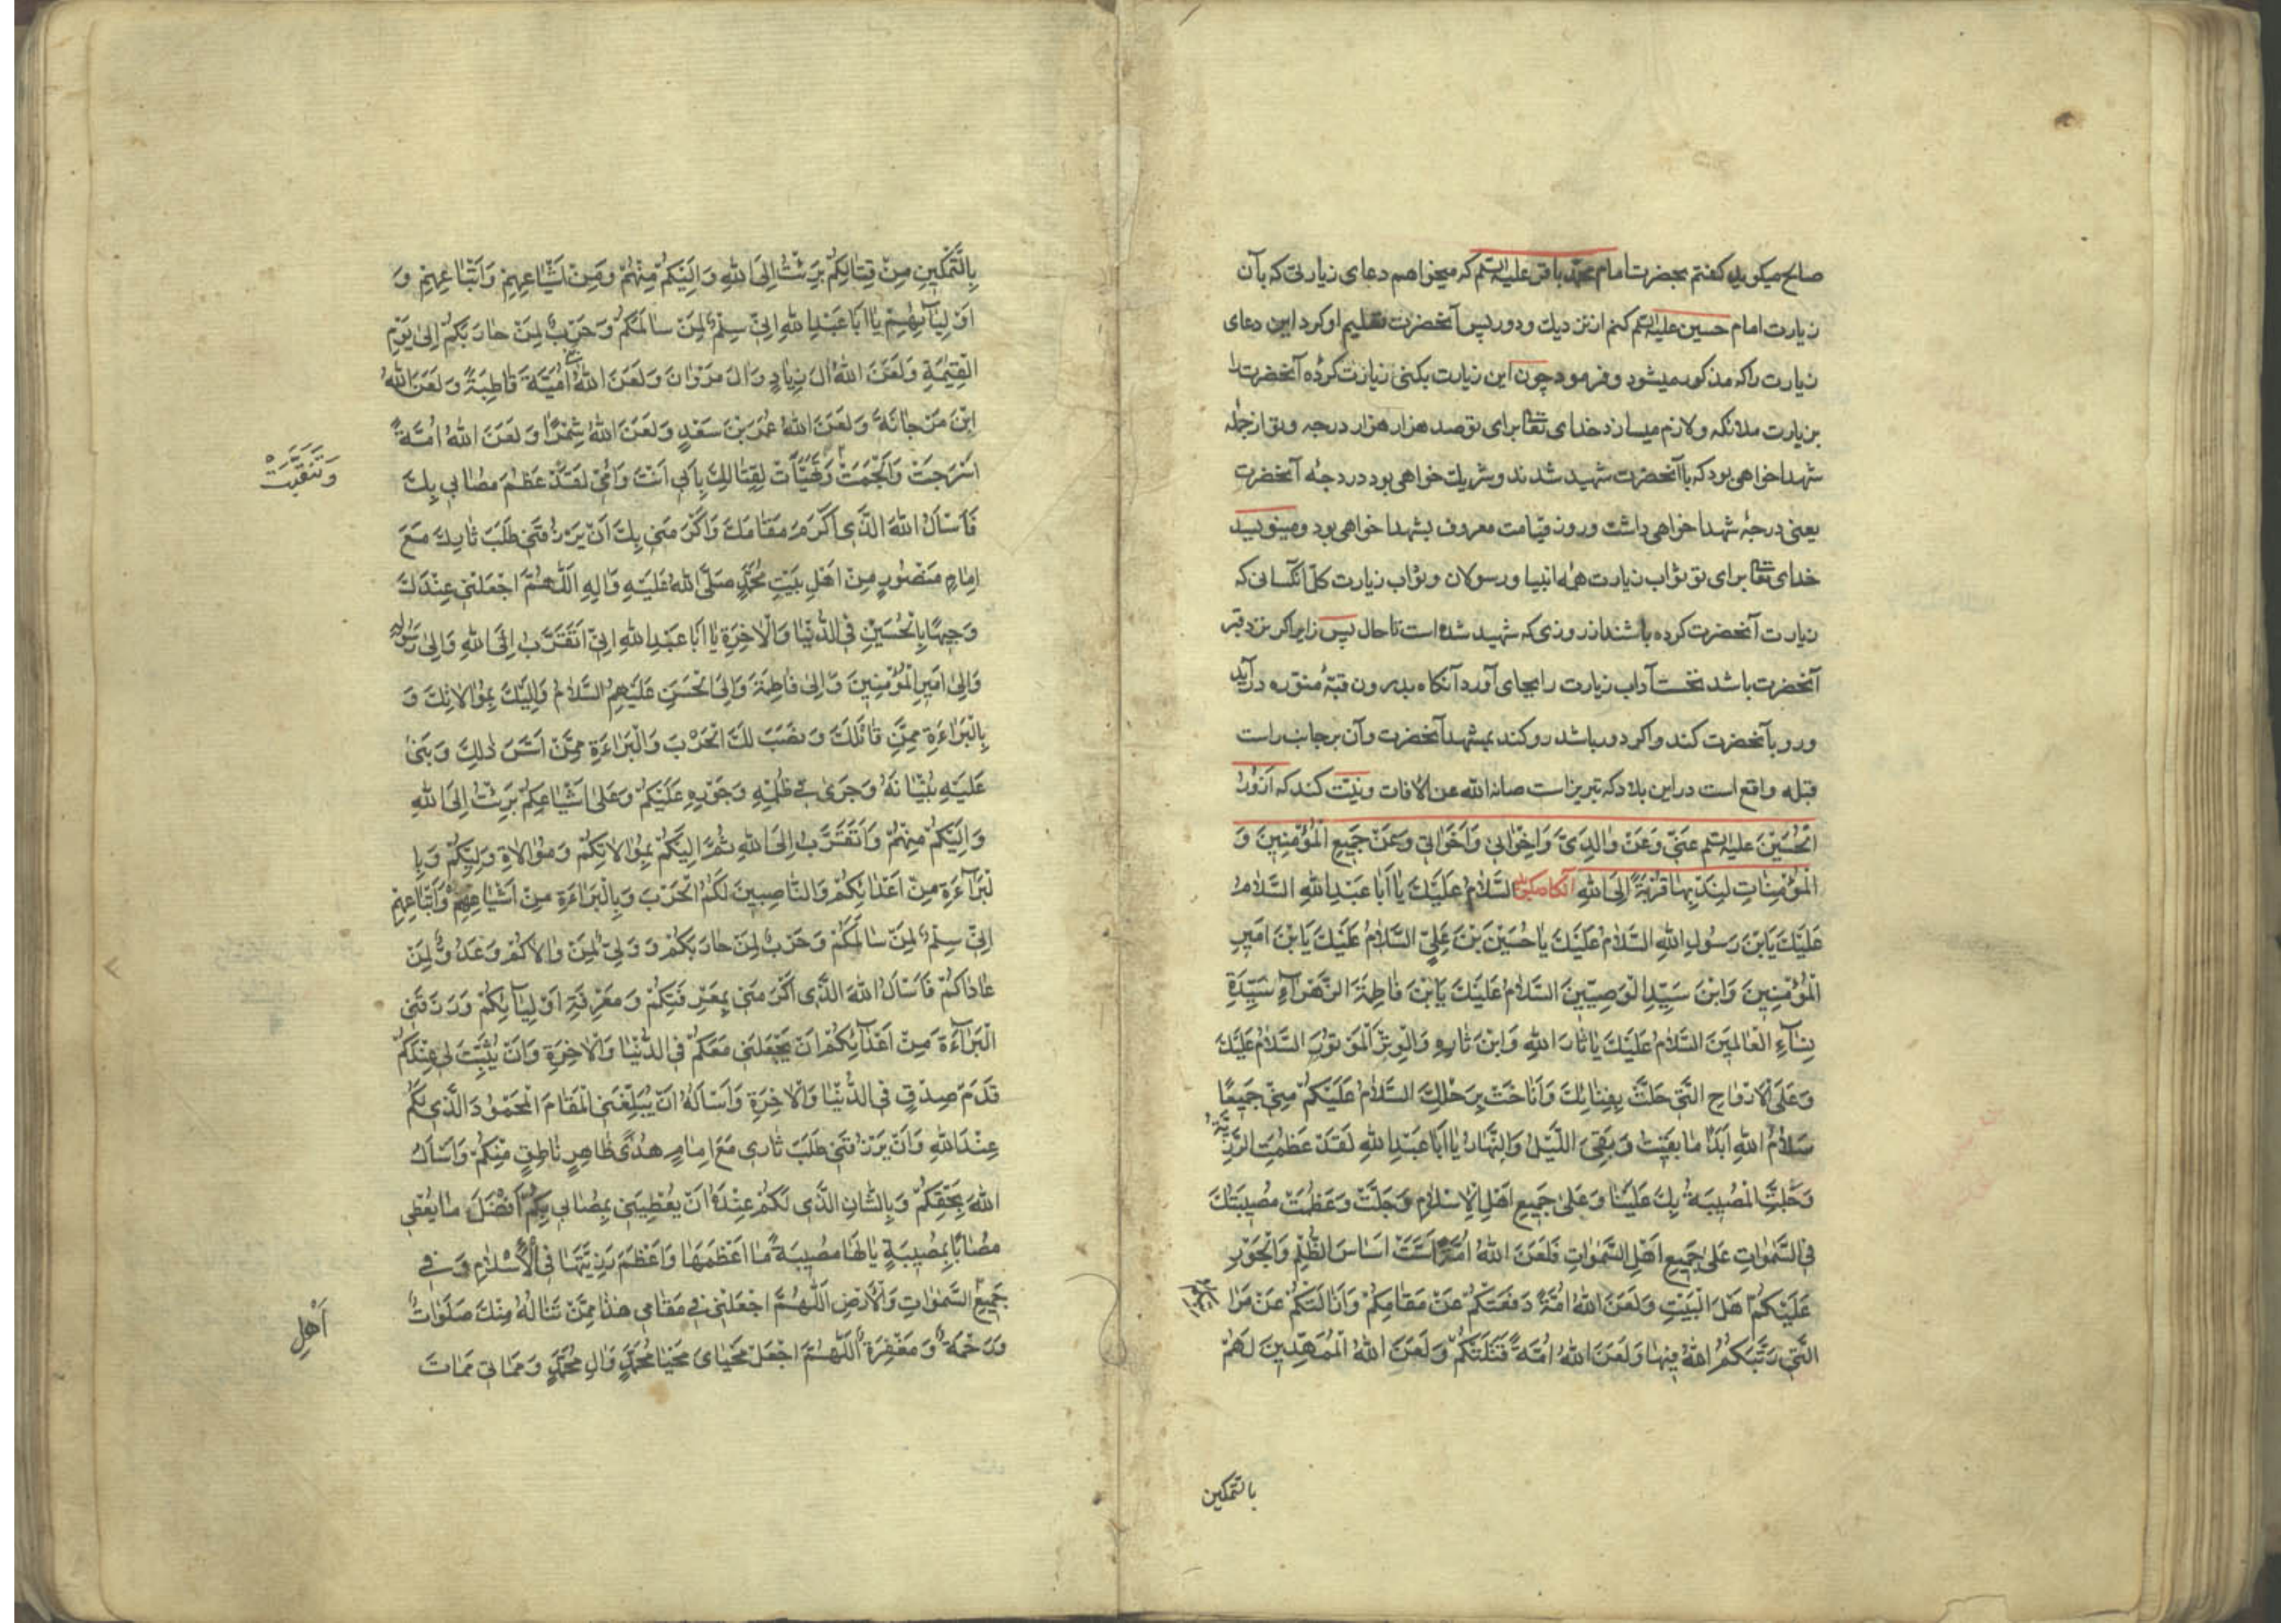 صالح میکوید کفتم بحضرت امام محمد باقر علیه السلم که میخواهم دعای زیارتی که بآن
زیارت امام حسین علیه السلم کنم از نزدیك و دور پس آنحضرت تعلیم او کرد این دعای
زیارت را که مذکور میشود و فرمود چون این زیارت بکنی زیارت کرده آنحضرت را
بزیارت ملائکه و لازم میسازد خدای تعالی برای تو صد هزار هزار درجه و تو از جمله
شهدا خواهی بود که با آنحضرت شهید شدند و شریك خواهی بود در درجه آنحضرت
یعنی درجه شهدا خواهی داشت و روز قیامت معروف بشهدا خواهی بود و مینویسد
خدای تعالی برای تو ثواب زیارت همه انبیا و رسولان و ثواب زیارت کل آنکسانی که
زیارت آنحضرت کرده باشند از روزی که شهید شده است تا حال پس زایر اکر نزد قبر
آنحضرت باشد نخست آداب زیارت را بجای آورد آنکاه بدرون قبه منوره در آید
و رو بآنحضرت کند و اکر دور باشد رو کند بمشهد آنحضرت و آن بر جانب راست
قبله واقع است در این بلاد که تبریز است صانه الله عن الافات و نیت کند که اَزُورُ
الْحُسَیْنَ علیه السلم عَنّی وَعَنْ وَالِدَیَّ وَاِخْوَانی وَاَخَوَاتی وَعَنْ جَمیعِ الْمُؤْمِنینَ وَ
الْمُؤْمِنَاتِ لِنَدْبِهَا قُرْبَةً اِلَی اللهِ آنکاه میکوید اَلسَّلَامُ عَلَیْكَ یَا اَبَا عَبْدِ اللهِ اَلسَّلَامُ
عَلَیْكَ یَابْنَ رَسُولِ اللهِ اَلسَّلَامُ عَلَیْكَ یَا حُسَیْنَ بْنَ عَلِیٍّ اَلسَّلَامُ عَلَیْكَ یَابْنَ اَمیرِ
الْمُؤْمِنینَ وَابْنَ سَیِّدِ الْوَصِیّینَ اَلسَّلَامُ عَلَیْكَ یَابْنَ فَاطِمَةَ الزَّهْرَآءِ سَیِّدَةِ
نِسَآءِ الْعَالَمینَ اَلسَّلَامُ عَلَیْكَ یَا ثَارَ اللهِ وَابْنَ ثَارِهِ وَالْوِتْرَ الْمَوْتُورَ اَلسَّلَامُ عَلَیْكَ
وَعَلَی الْاَرْوَاحِ الَّتی حَلَّتْ بِفِنَائِكَ وَاَنَاخَتْ بِرَحْلِكَ اَلسَّلَامُ عَلَیْکُمْ مِنّی جَمیعًا
سَلَامُ اللهِ اَبَدًا مَا بَقیتُ وَبَقِیَ اللَّیْلُ وَالنَّهَارُ یَا اَبَا عَبْدِ اللهِ لَقَدْ عَظُمَتِ الرَّزِیَّةُ
وَجَلَّتِ الْمُصیبَةُ بِكَ عَلَیْنَا وَعَلی جَمیعِ اَهْلِ الْاِسْلَامِ وَجَلَّتْ وَعَظُمَتْ مُصیبَتُكَ
فِی السَّمٰوَاتِ عَلی جَمیعِ اَهْلِ السَّمٰوَاتِ فَلَعَنَ اللهُ اُمَّةً اَسَّسَتْ اَسَاسَ الظُّلْمِ وَالْجَوْرِ
عَلَیْکُمْ اَهْلَ الْبَیْتِ وَلَعَنَ اللهُ اُمَّةً دَفَعَتْکُمْ عَنْ مَقَامِکُمْ وَاَزَالَتْکُمْ عَنْ مَرَا
الَّتی رَتَّبَکُمُ اللهُ فیهَا وَلَعَنَ اللهُ اُمَّةً قَتَلَتْکُمْ وَلَعَنَ اللهُ الْمُمَهِّدینَ لَهُمْ
بالتمکین
بِالتَّمْکینِ مِنْ قِتَالِکُمْ بَرِئْتُ اِلَی اللهِ وَاِلَیْکُمْ مِنْهُمْ وَمِنْ اَشْیَاعِهِمْ وَاَتْبَاعِهِمْ وَ
اَوْلِیَآئِهِمْ یَا اَبَا عَبْدِ اللهِ اِنّی سِلْمٌ لِمَنْ سَالَمَکُمْ وَحَرْبٌ لِمَنْ حَارَبَکُمْ اِلی یَوْمِ
الْقِیٰمَةِ وَلَعَنَ اللهُ الَ زِیَادٍ وَالَ مَرْوَانَ وَلَعَنَ اللهُ بنی اُمَیَّةَ قَاطِبَةً وَلَعَنَ اللهُ
ابْنَ مَرْجَانَةَ وَلَعَنَ اللهُ عُمَرَ بْنَ سَعْدٍ وَلَعَنَ اللهُ شِمْرًا وَلَعَنَ اللهُ اُمَّةً
اَسْرَجَتْ وَاَلْجَمَتْ وَتَهَیَّأَتْ لِقِتَالِكَ بِاَبی اَنْتَ وَاُمّی لَقَدْ عَظُمَ مُصَابی بِكَ
وَتَنَقَّبَتْ
فَاَسْاَلُ اللهَ الَّذی اَکْرَمَ مَقَامَكَ وَاَکْرَمَنی بِكَ اَنْ یَرْزُقَنی طَلَبَ ثَارِكَ مَعَ
اِمَامٍ مَنْصُورٍ مِنْ اَهْلِ بَیْتِ مُحَمَّدٍ صَلَّی اللهُ عَلَیْهِ وَالِهِ اَللّٰهُمَّ اجْعَلْنی عِنْدَكَ
وَجیهًا بِالْحُسَیْنِ فِی الدُّنْیَا وَالْاخِرَةِ یَا اَبَا عَبْدِ اللهِ اِنّی اَتَقَرَّبُ اِلَی اللهِ وَاِلی رَسُولِهِ
وَاِلی اَمیرِ الْمُؤْمِنینَ وَاِلی فَاطِمَةَ وَاِلَی الْحَسَنِ عَلَیْهِمُ السَّلَامُ وَاِلَیْكَ بِمُوَالَاتِكَ وَ
بِالْبَرَاءَةِ مِمَّنْ قَاتَلَكَ وَنَصَبَ لَكَ الْحَرْبَ وَالْبَرَاءَةِ مِمَّنْ اَسَّسَ ذٰلِكَ وَبَنی
عَلَیْهِ بُنْیَانَهُ وَجَرَی فی ظُلْمِهِ وَجَوْرِهِ عَلَیْکُمْ وَعَلی اَشْیَاعِکُمْ بَرِئْتُ اِلَی اللهِ
وَاِلَیْکُمْ مِنْهُمْ وَاَتَقَرَّبُ اِلَی اللهِ ثُمَّ اِلَیْکُمْ بِمُوَالَاتِکُمْ وَمُوَالَاةِ وَلِیِّکُمْ وَبِا
لْبَرَآءَةِ مِنْ اَعْدَائِکُمْ وَالنَّاصِبینَ لَکُمُ الْحَرْبَ وَبِالْبَرَاءَةِ مِنْ اَشْیَاعِهِمْ وَاَتْبَاعِهِمْ
اِنّی سِلْمٌ لِمَنْ سَالَمَکُمْ وَحَرْبٌ لِمَنْ حَارَبَکُمْ وَوَلِیٌّ لِمَنْ وَالَاکُمْ وَعَدُوٌّ لِمَنْ
عَادَاکُمْ فَاَسْاَلُ اللهَ الَّذی اَکْرَمَنی بِمَعْرِفَتِکُمْ وَمَعْرِفَةِ اَوْلِیَآئِکُمْ وَرَزَقَنی
الْبَرَآءَةَ مِنْ اَعْدَآئِکُمْ اَنْ یَجْعَلَنی مَعَکُمْ فِی الدُّنْیَا وَالْاخِرَةِ وَاَنْ یُثَبِّتَ لی عِنْدَکُمْ
قَدَمَ صِدْقٍ فِی الدُّنْیَا وَالْاخِرَةِ وَاَسْاَلُهُ اَنْ یُبَلِّغَنِی الْمَقَامَ الْمَحْمُودَ الَّذی لَکُمْ
عِنْدَ اللهِ وَاَنْ یَرْزُقَنی طَلَبَ ثَاری مَعَ اِمَامٍ هُدًی ظَاهِرٍ نَاطِقٍ مِنْکُمْ وَاَسْاَلُ
اللهَ بِحَقِّکُمْ وَبِالشَّانِ الَّذی لَکُمْ عِنْدَهُ اَنْ یُعْطِیَنی بِمُصَابی بِکُمْ اَفْضَلَ مَا یُعْطی
مُصَابًا بِمُصیبَةٍ یَا لَهَا مُصیبَةً مَا اَعْظَمَهَا وَاَعْظَمَ رَزِیَّتَهَا فِی الْاِسْلَامِ وَفی
جَمیعِ السَّمٰوَاتِ وَالْاَرْضِ اَللّٰهُمَّ اجْعَلْنی فی مَقَامی هٰذَا مِمَّنْ تَنَالُهُ مِنْكَ صَلَوَاتٌ
اَهْلِ
وَرَحْمَةٌ وَمَغْفِرَةٌ اَللّٰهُمَّ اجْعَلْ مَحْیَایَ مَحْیَا مُحَمَّدٍ وَالِ مُحَمَّدٍ وَمَمَاتی مَمَاتَ